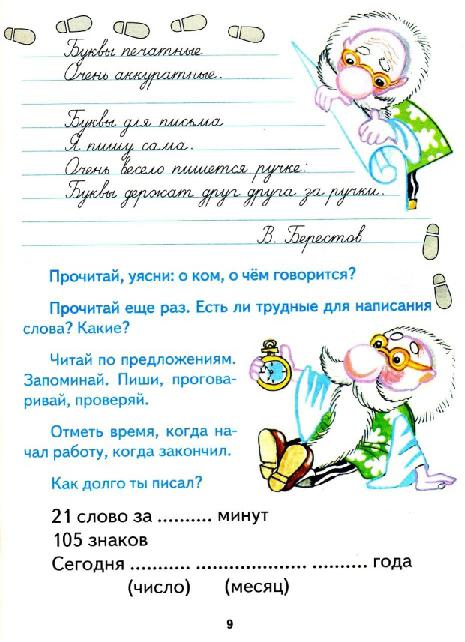 Буквы печатные
Очень аккуратные.
Буквы для письма
Я пишу сама.
Очень весело пишется ручке:
Буквы держат друг друга за ручки.
В. Берестов
Прочитай, уясни: о ком, о чём говорится?
Прочитай еще раз. Есть ли трудные для написания
слова? Какие?
Читай по предложениям.
Запоминай. Пиши, прогова-
ривай, проверяй.
Отметь время, когда на-
чал работу, когда закончил.
Как долго ты писал?
21 слово за .......... минут
105 знаков
Сегодня ........... ..................... .......... года
(число) (месяц)
9